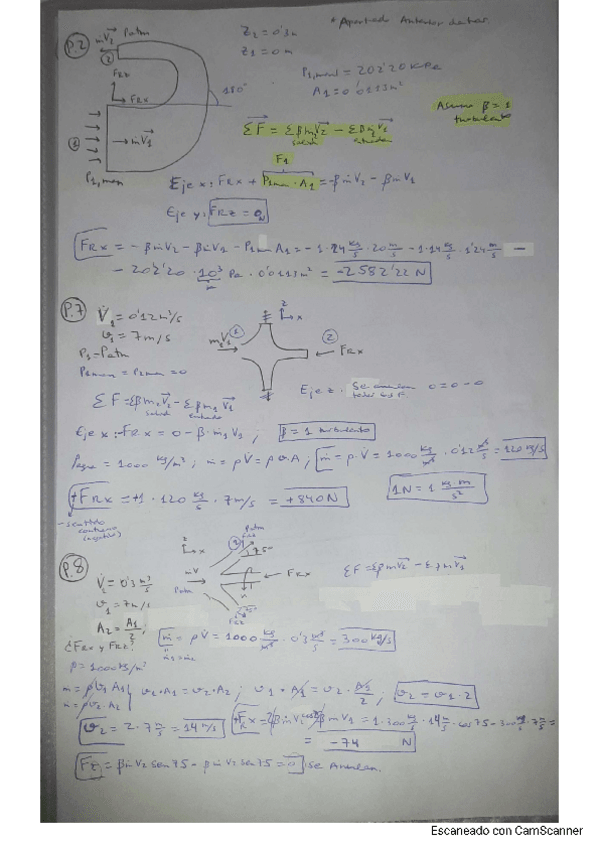 * Apartado Anterior
P.2
ṁV2 Patm
Z2 = 0'3m
Z1 = 0 m
2
FRz
FRx
180°
P1,man = 202'20 KPa
A1 = 0'0113 m²
Asumo β = 1
turbulento
1
ṁV1
P1,man
ΣF = Σβṁ2V2 - Σβṁ1V1
salida entrada
F1
Eje x: FRx + P1man · A1 = -βṁV2 - βṁV1
Eje y: FRz = 0
FRx = -βṁV2 - βṁV1 - P1man A1 = -1·14 kg/s · 20 m/s - 1·14 kg/s · 1'24 m/s -
- 202'20 · 10³ Pa · 0'0113 m² = -2582'22 N
P.7
V̇1 = 0'12 m³/s
v1 = 7 m/s
P1 = Patm
P1man = P2man = 0
z
x
1
2
FRx
Eje z. Se anulan 0 = 0 - 0
ΣF = Σβṁ2V2 - Σβṁ1V1
salida entrada
Eje x: -FRx = 0 - β·ṁ1V1 ; β = 1 turbulento
ρagua = 1000 kg/m³ ; ṁ = ρV̇ = ρv·A ; ṁ = ρ·V̇ = 1000 kg/m³ · 0'12 m³/s = 120 kg/s
+FRx = +1 · 120 kg/s · 7 m/s = +840 N
1N = 1 kg m/s²
- sentido
contrario
(negativo)
P.8
V̇2 = 0'3 m³/s
v1 = 7 m/s
A2 = A1/2 ;
¿FRx y FRz?
ρ = 1000 kg/m³
z
x
Patm
2
75°
ṁV
Patm
FRx
ΣF = Σβṁ2V2 - Σβṁ1V1
ṁ = ρV̇ = 1000 kg/m³ · 0'3 m³/s = 300 kg/s
ṁ1 = ṁ2
ṁ = ρv1 A1
ṁ = ρv2 · A2
v1·A1 = v2·A2 ; v1 · A1 = v2 · A1/2 ; v2 = v1 · 2
v2 = 2 · 7 m/s = 14 m/s
+FRx = βṁV2 cos75 - βṁV1 = 1·300 kg/s · 14 m/s · cos75 - 300 kg/s · 7 m/s =
= -74 N
Fz = βṁV2 sen75 - βṁV2 sen75 = 0 ; se Anulan.
Escaneado con CamScanner